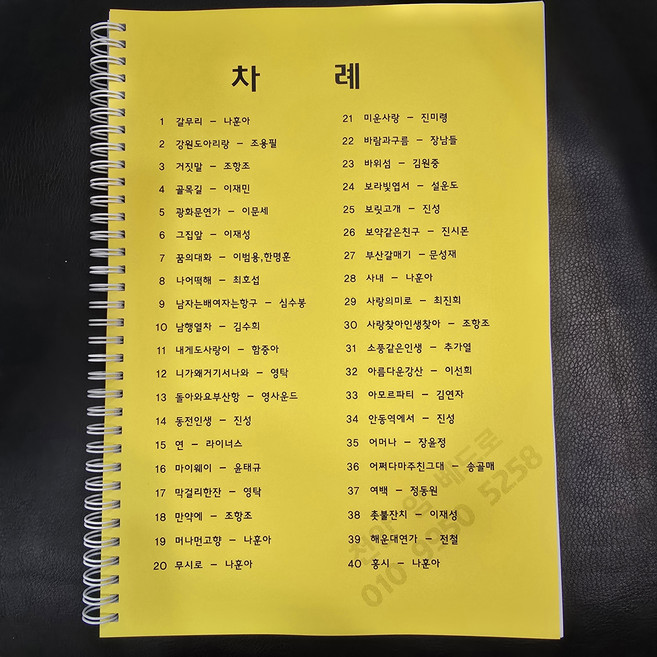 차 례
1 갈무리 - 나훈아
2 강원도아리랑 - 조용필
3 거짓말 - 조항조
4 골목길 - 이재민
5 광화문연가 - 이문세
6 그집앞 - 이재성
7 꿈의대화 - 이범용,한명훈
8 나어떡해 - 최호섭
9 남자는배여자는항구 - 심수봉
10 남행열차 - 김수희
11 내게도사랑이 - 함중아
12 니가왜거기서나와 - 영탁
13 돌아와요부산항 - 영사운드
14 동전인생 - 진성
15 연 - 라이너스
16 마이웨이 - 윤태규
17 막걸리한잔 - 영탁
18 만약에 - 조항조
19 머나먼고향 - 나훈아
20 무시로 - 나훈아
21 미운사랑 - 진미령
22 바람과구름 - 장남들
23 바위섬 - 김원중
24 보라빛엽서 - 설운도
25 보릿고개 - 진성
26 보약같은친구 - 진시몬
27 부산갈매기 - 문성재
28 사내 - 나훈아
29 사랑의미로 - 최진희
30 사랑찾아인생찾아 - 조항조
31 소풍같은인생 - 추가열
32 아름다운강산 - 이선희
33 아모르파티 - 김연자
34 안동역에서 - 진성
35 어머나 - 장윤정
36 어쩌다마주친그대 - 송골매
37 여백 - 정동원
38 촛불잔치 - 이재성
39 해운대연가 - 전철
40 홍시 - 나훈아
010 9950 5258